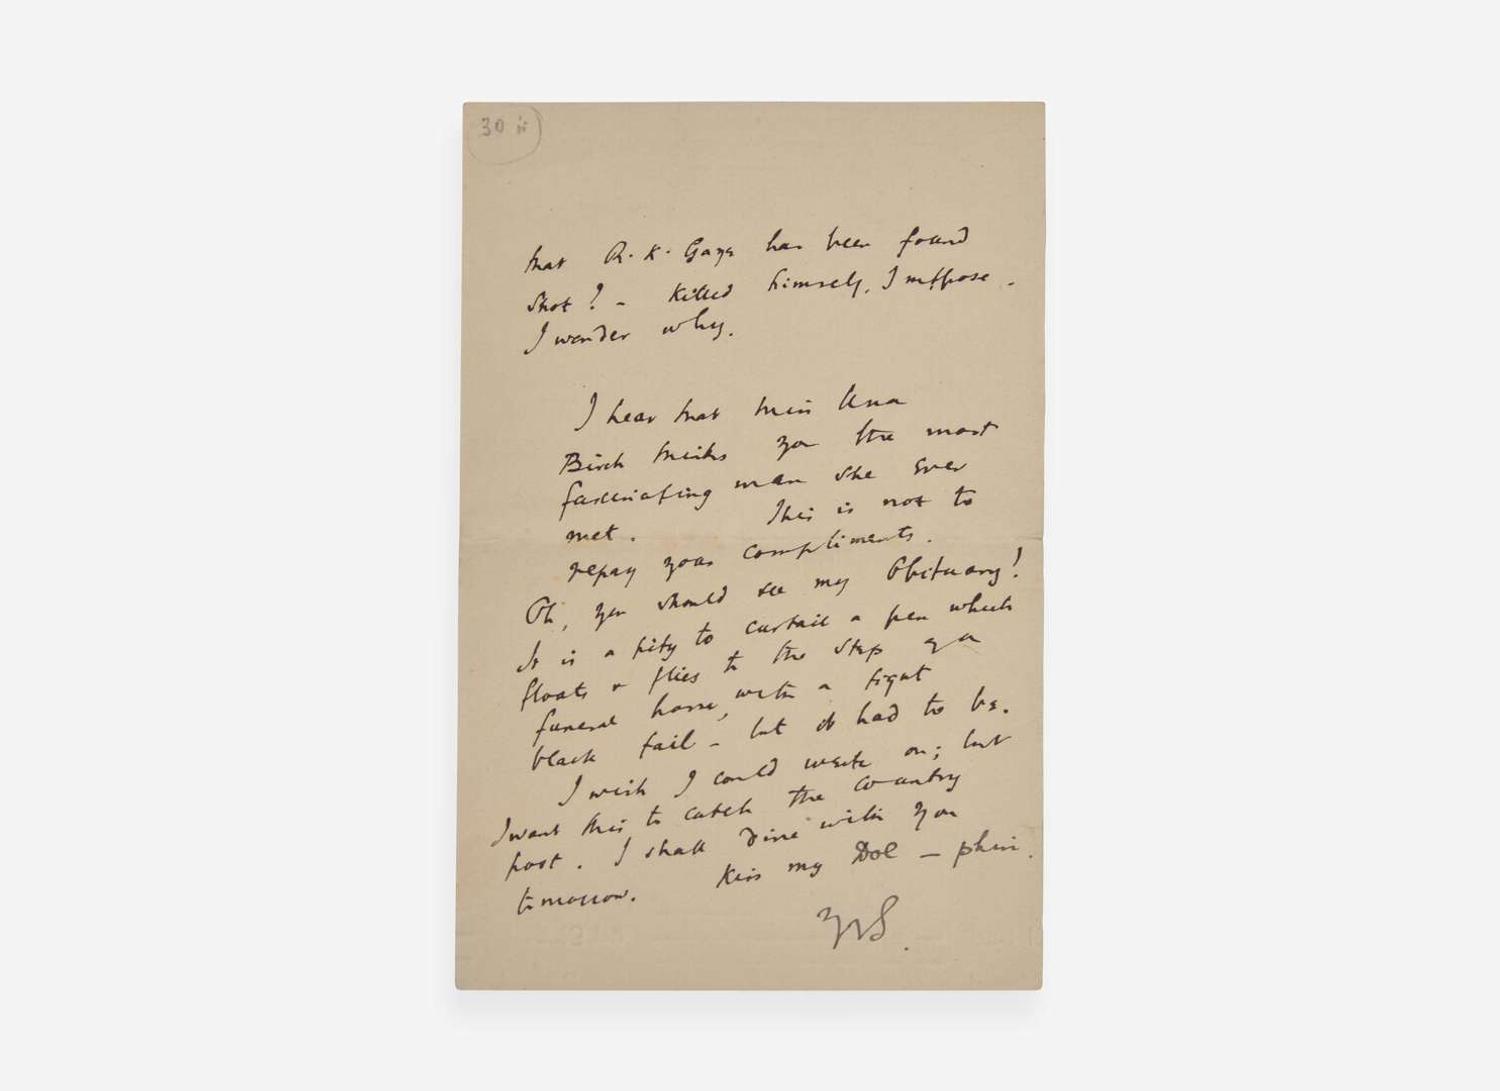 30 ii
that R. K. Gaye has been found
shot? - Killed himself, I suppose.
I wonder why.
I hear that Miss Una
Birch thinks you the most
fascinating man she ever
met. This is not to
repay your compliments.
Oh, you should see my Obituary!
It is a pity to curtail a pen which
floats & flies to the step of a
funeral horse, with a tight
black tail - but it had to be.
I wish I could write on; but
I want this to catch the country
post. I shall dine with you
tomorrow. Kiss my Dol - phin.